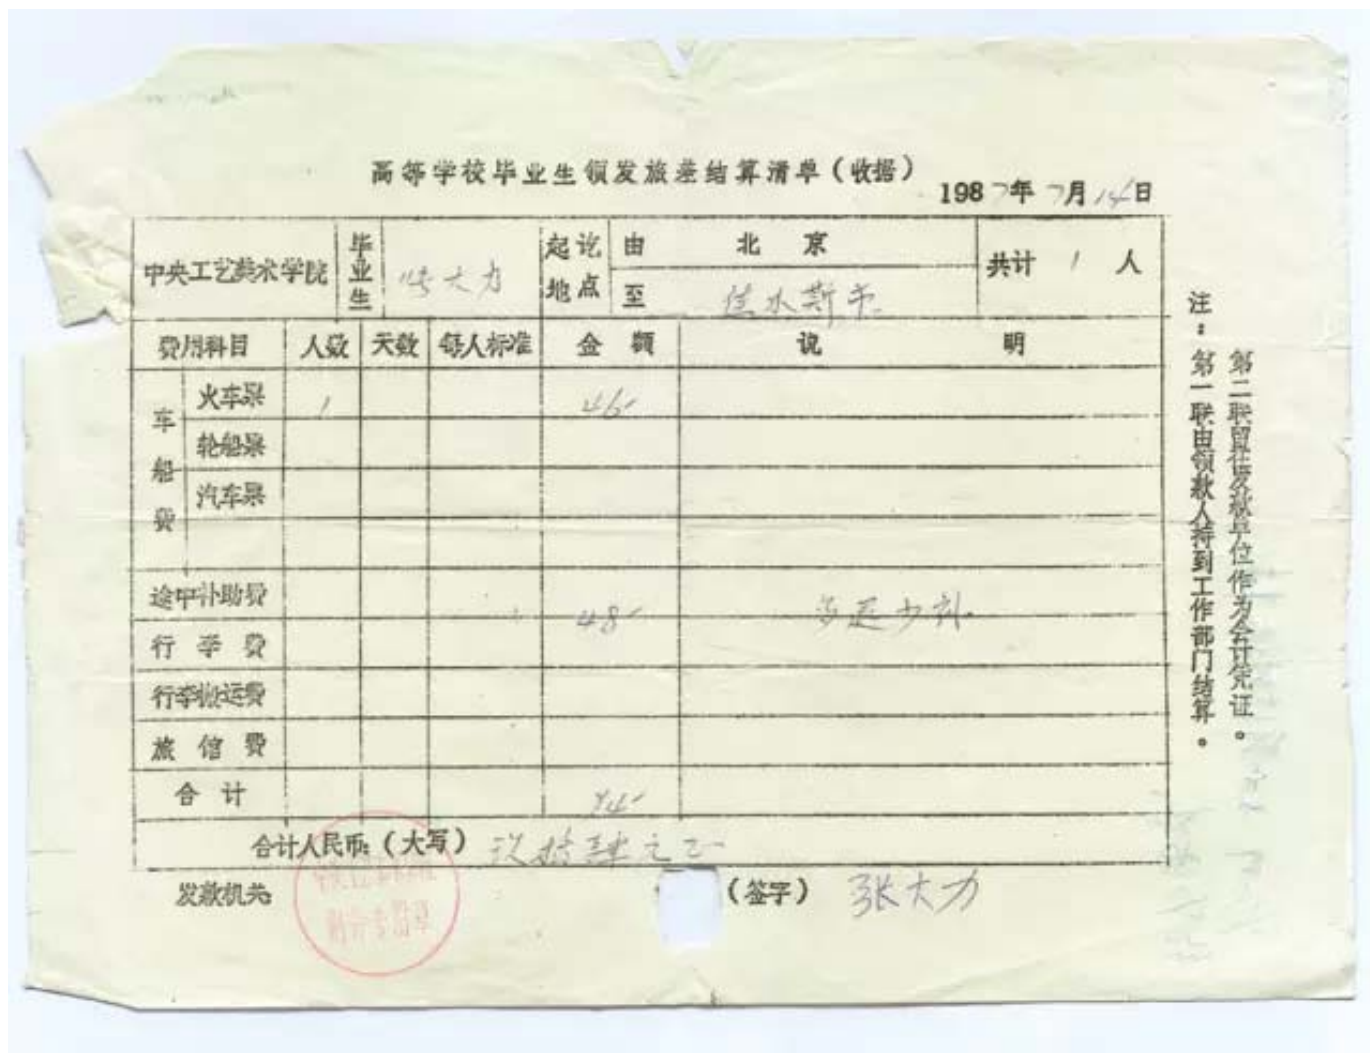 高等学校毕业生领发旅差结算清单(收据)
1987年7月14日
中央工艺美术学院 毕业生 张大力 起讫地点 由 北京 共计 1 人
至 佳木斯市
费用科目 人数 天数 每人标准 金额 说明
车船费 火车票 1 46-
轮船票
汽车票
途中补助费 48- 多退少补
行李费
行李搬运费
旅馆费
合计 94-
合计人民币:(大写) 玖拾肆元正
发款机关: (签字) 张大力
财务专用章
注:第一联由领款人持到工作部门结算。
第二联留在发款单位作为会计凭证。